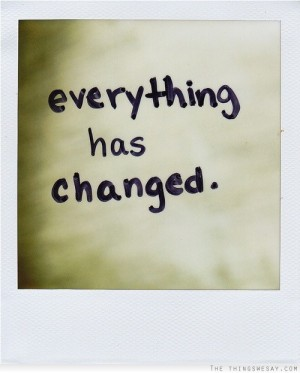 everything
has
changed.
THE THINGSWESAY.COM